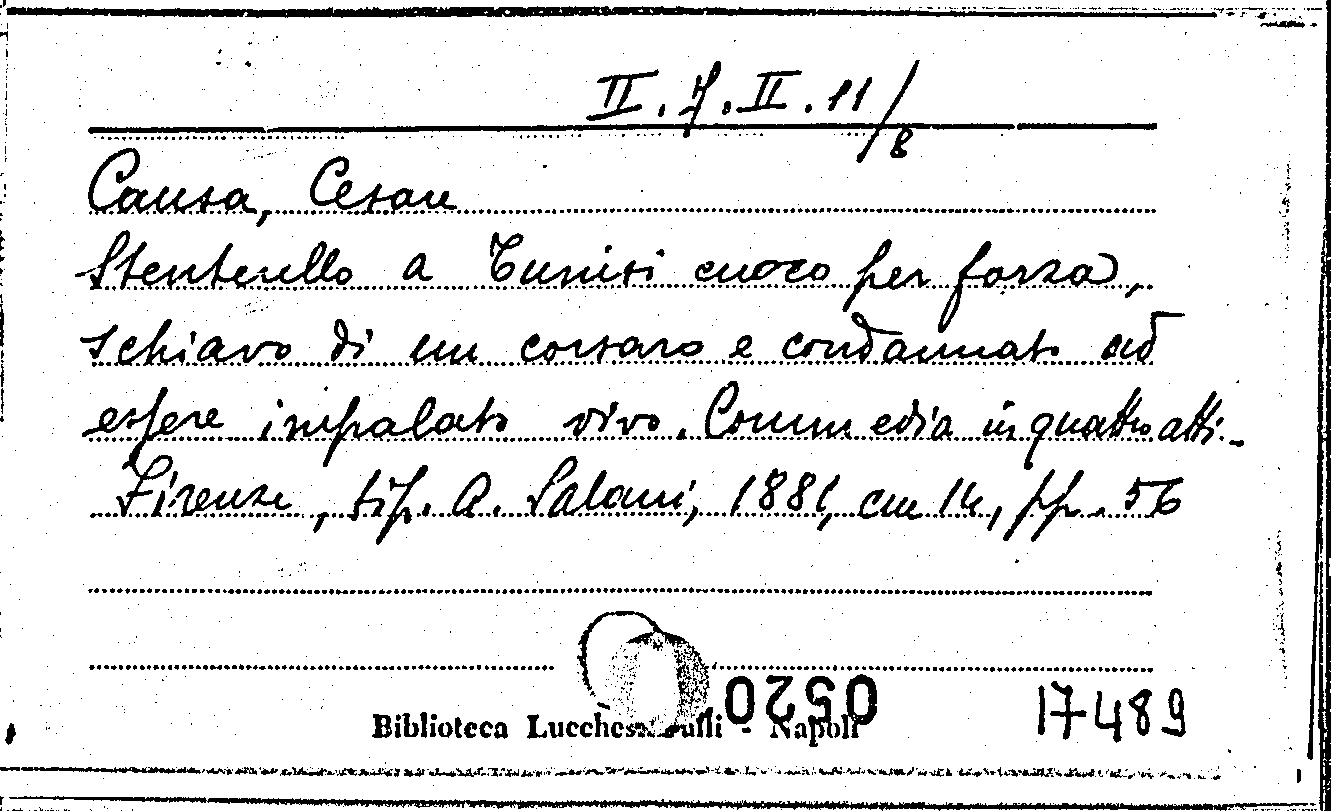 II.7.II.11/8
Causa, Cesare
Stenterello a Tunisi cuoco per forza,
schiavo di un corsaro e condannato ad
essere impalato vivo. Commedia in quattro atti.-
Firenze, tip. A. Salani, 1881, cm 14, pp. 56
Biblioteca Lucchesi Palli - Napoli
0520
17489